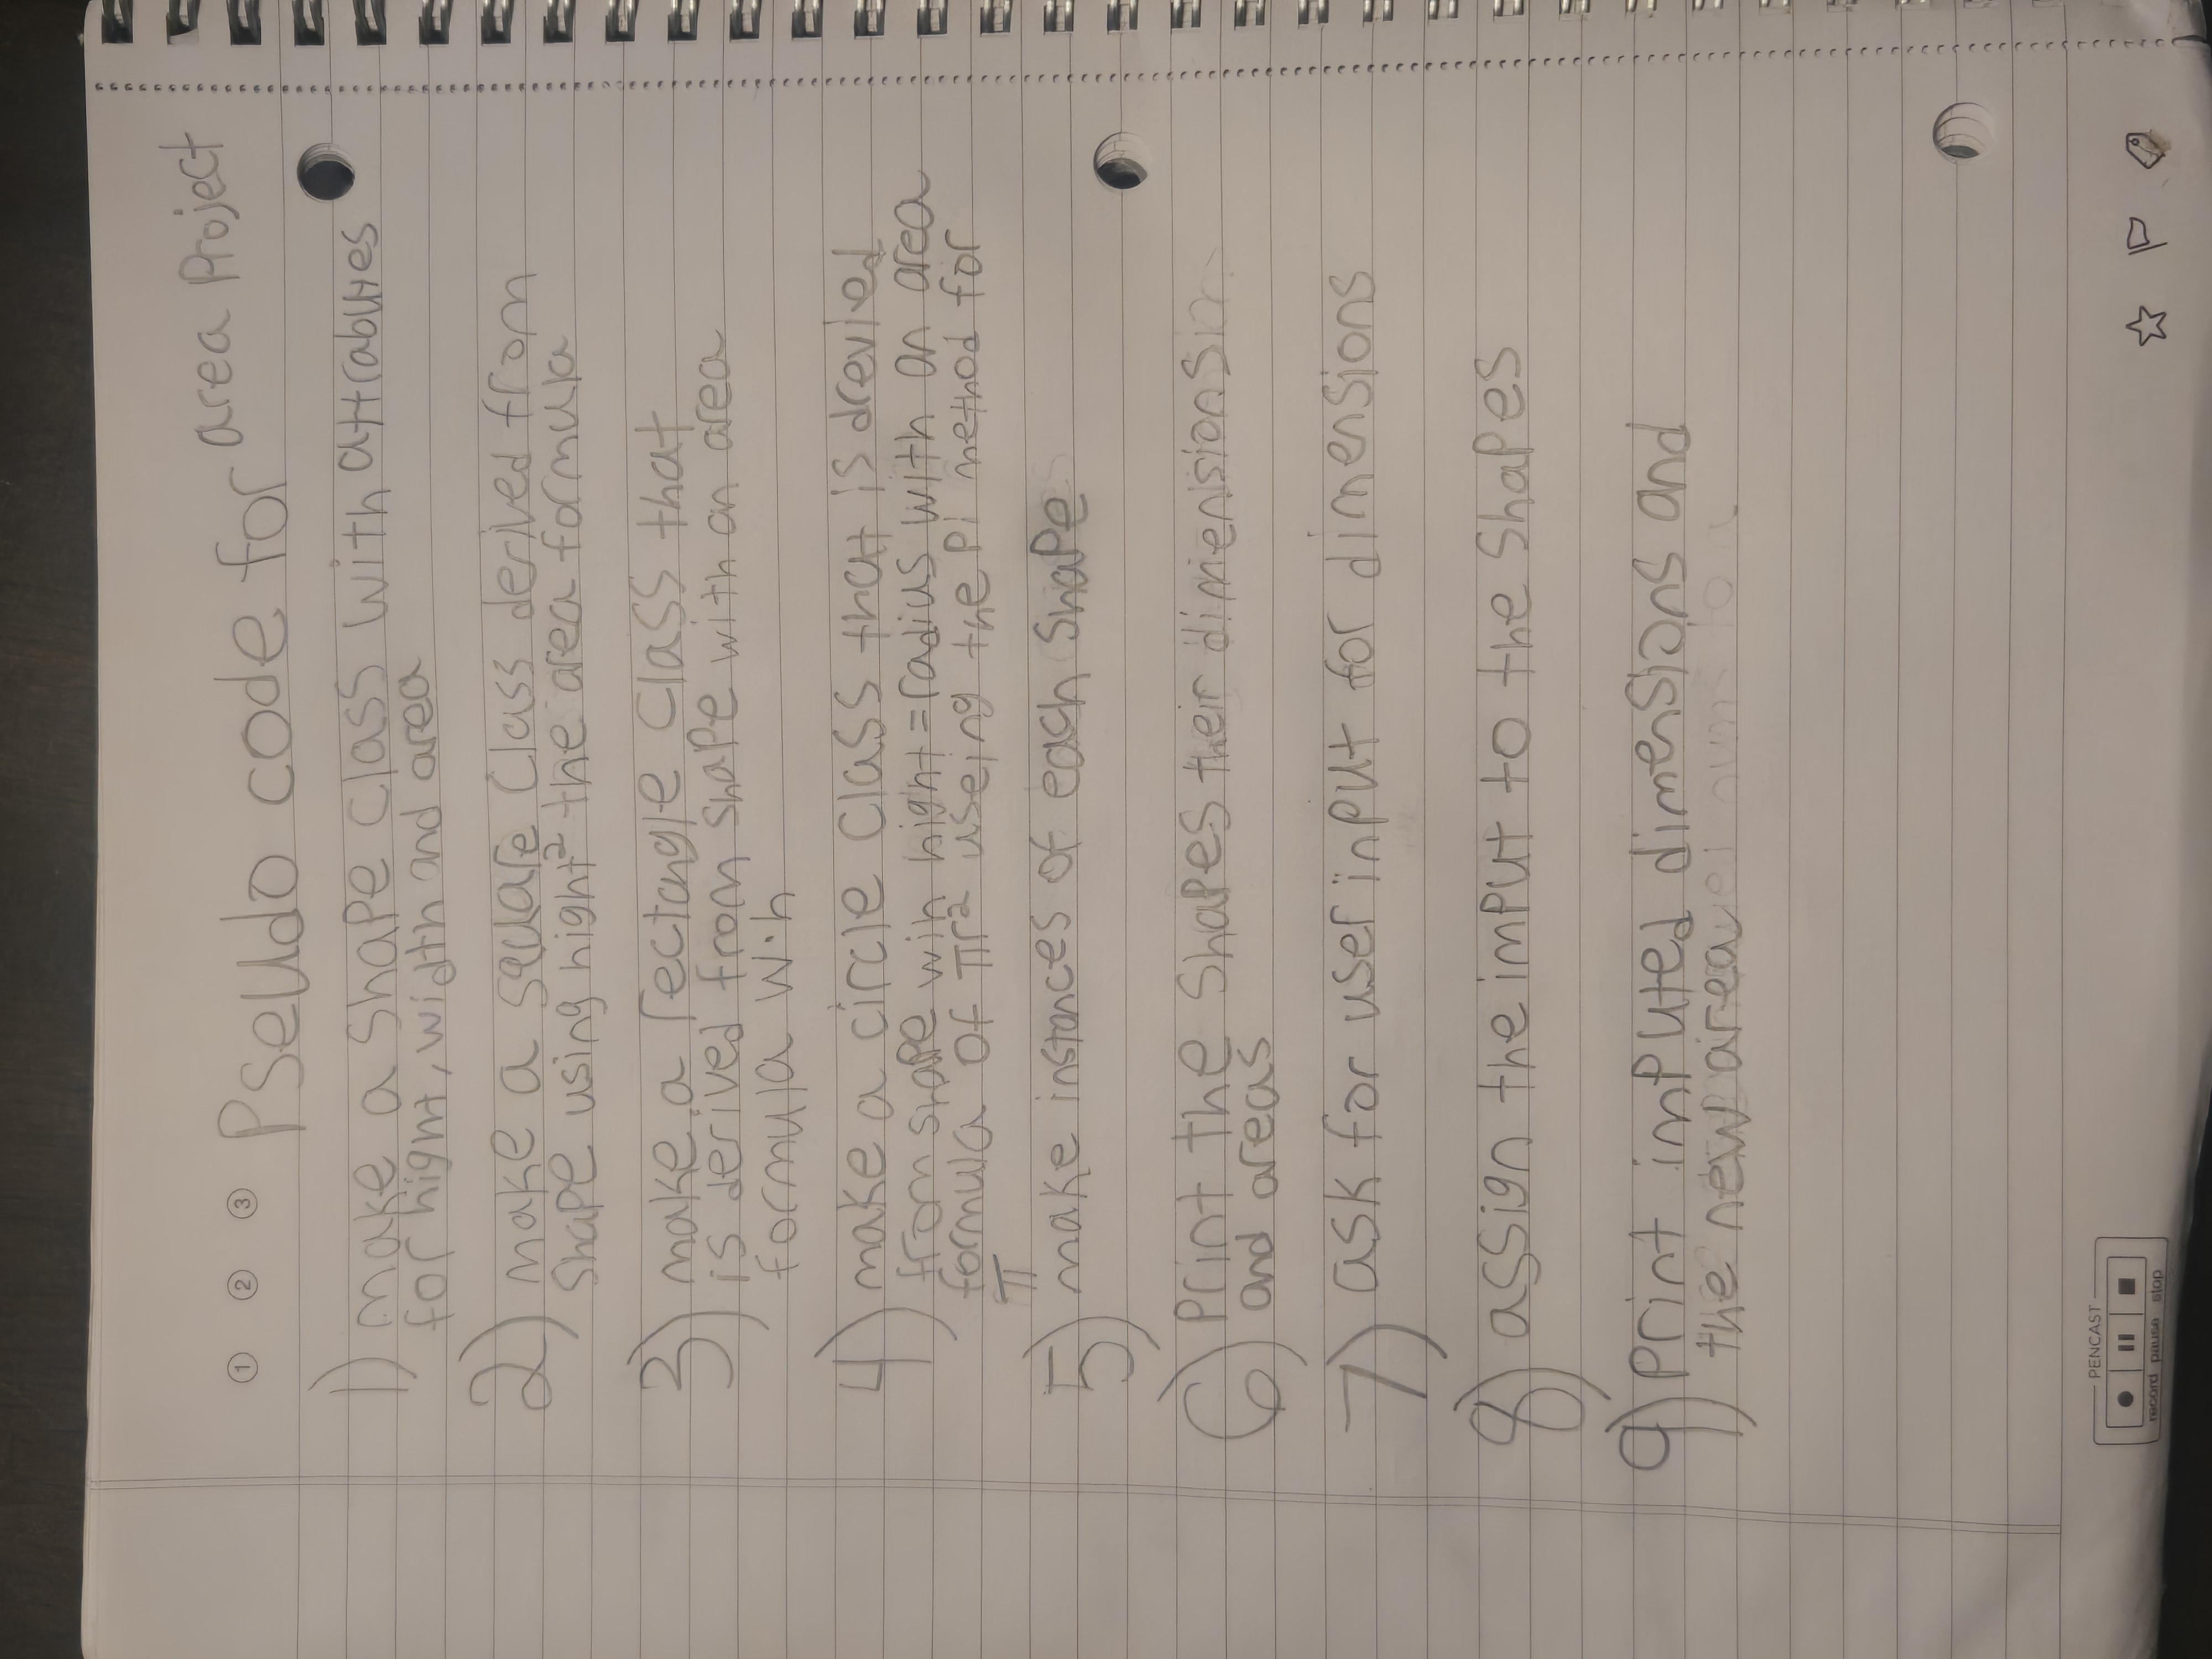 ① ② ③ Pseudo code for area Project
1) make a shape class with attrabutes
for hight, width and area
2) make a square class derived from
shape using hight² the area formula
3) make a rectangle class that
is derived from shape with an area
formula w·h
4) make a circle class that is drevied
from shape wih hight = radius with an area
formula of πr² useing the Pi method for
π
5) make instances of each shape
6) Print the shapes their dimensions
and areas
7) ask for user input for dimensions
8) assign the imput to the shapes
9) print imputed dimensions and
the new area
PENCAST
record pause stop